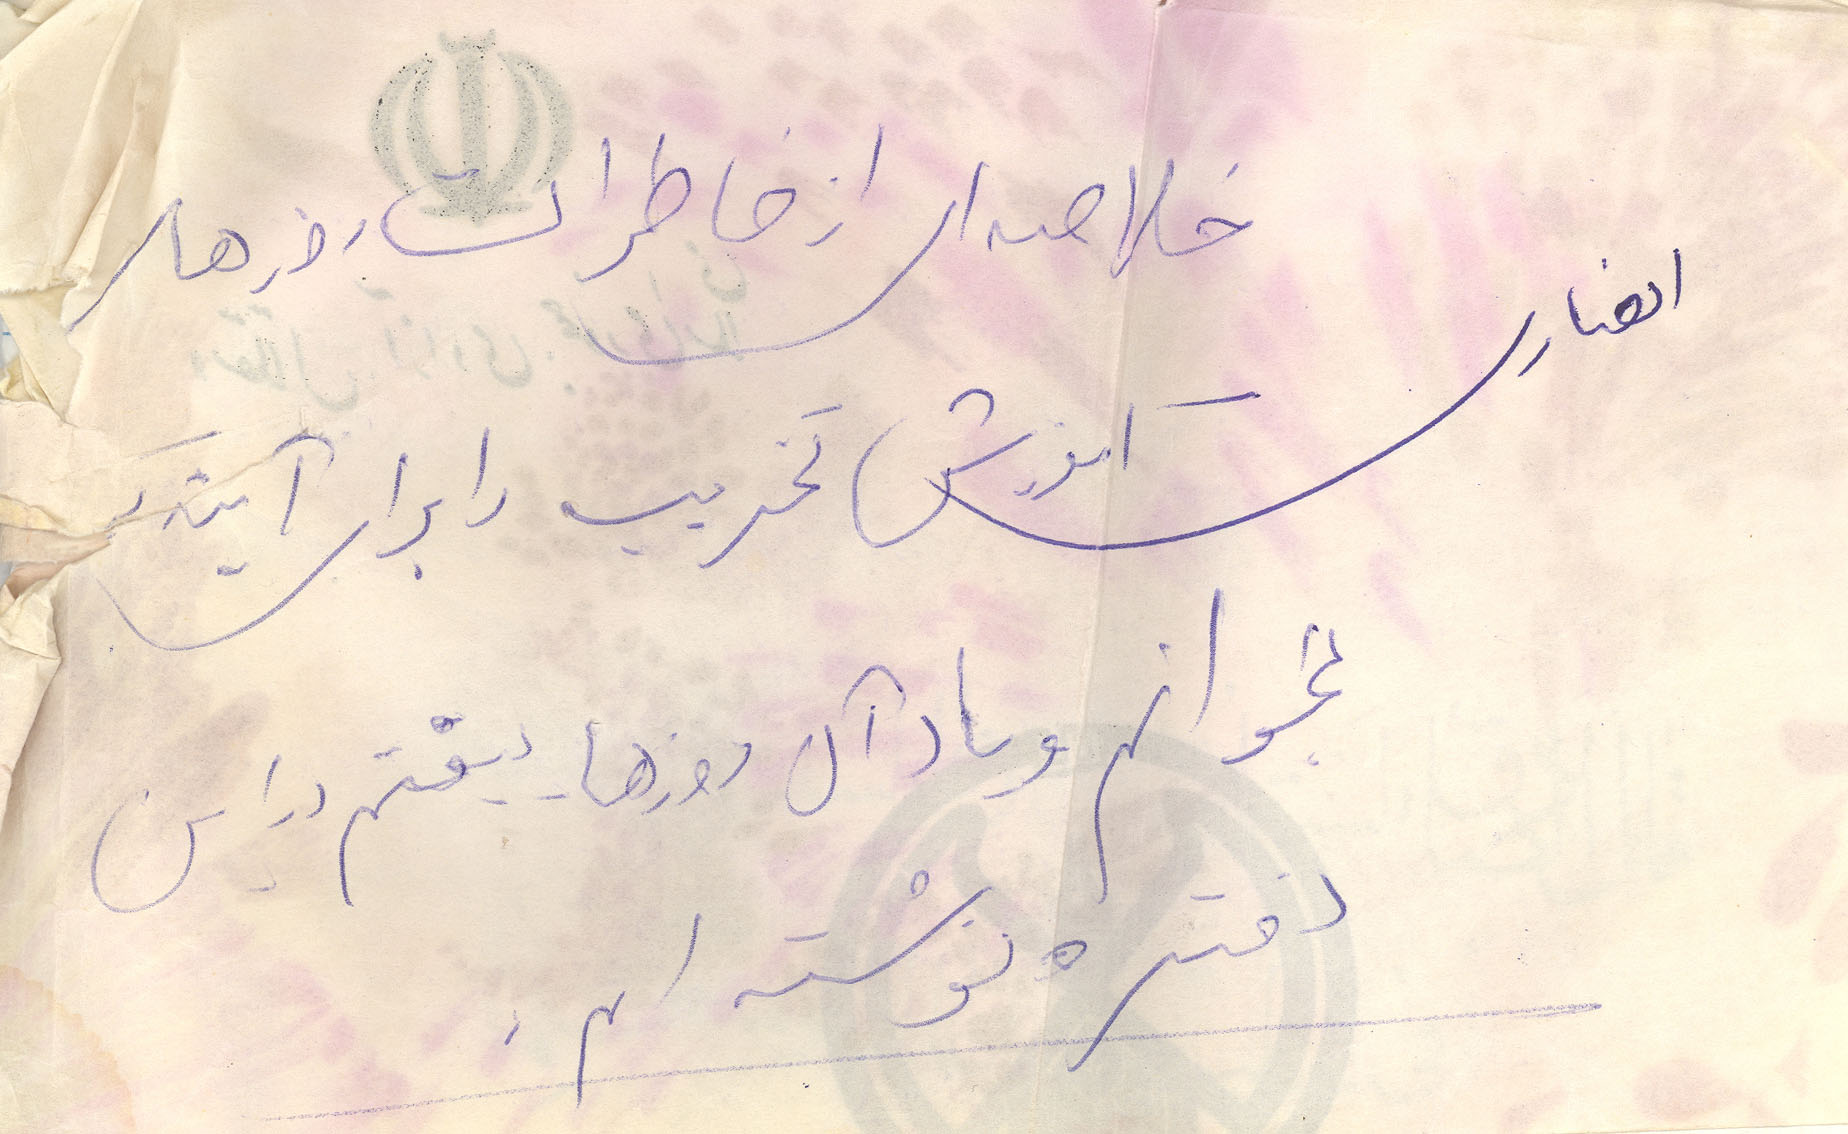 خلاصه ای از خاطرات روزهای
انصاری
آموزش تخریب را برای آینکه
بخوانم و یاد آن روزها بیفتم در این
دفتره نوشته ام.